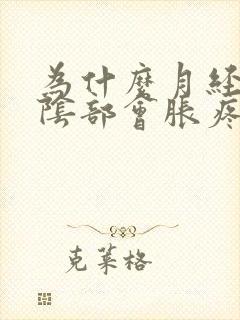 為什麼月经
陰部會脹疼
克莱格